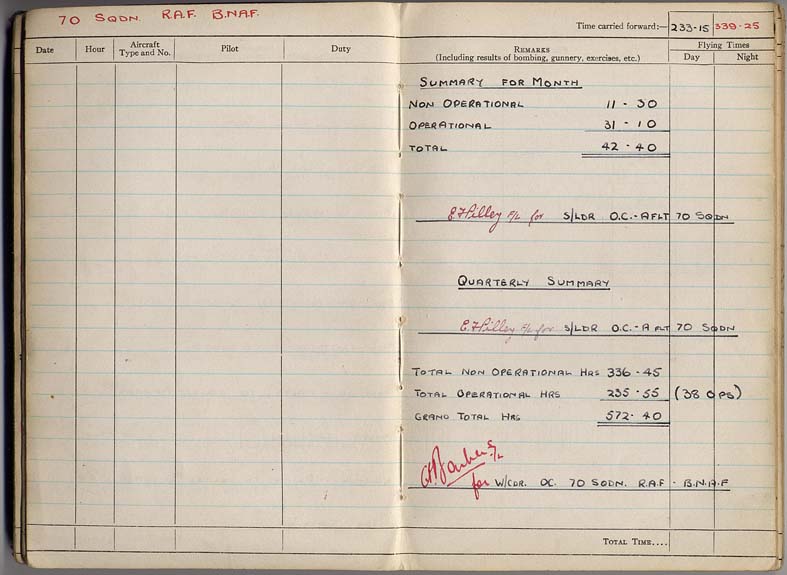 70 SQDN. R.A.F. B.N.A.F.
Time carried forward:— 233-15 339-25
Date Hour Aircraft Type and No. Pilot Duty REMARKS (Including results of bombing, gunnery, exercises, etc.) Flying Times Day Night
SUMMARY FOR MONTH
NON OPERATIONAL 11 - 30
OPERATIONAL 31 - 10
TOTAL 42 - 40
E.F.Pilley F/L for S/LDR O.C.- A FLT 70 SQDN
QUARTERLY SUMMARY
E.F.Pilley F/L for S/LDR O.C.- A FLT 70 SQDN
TOTAL NON OPERATIONAL HRS 336-45
TOTAL OPERATIONAL HRS 235-55 (38 OPS)
GRAND TOTAL HRS 572-40
for W/CDR. OC. 70 SQDN. R.A.F - B.N.A.F
TOTAL TIME....